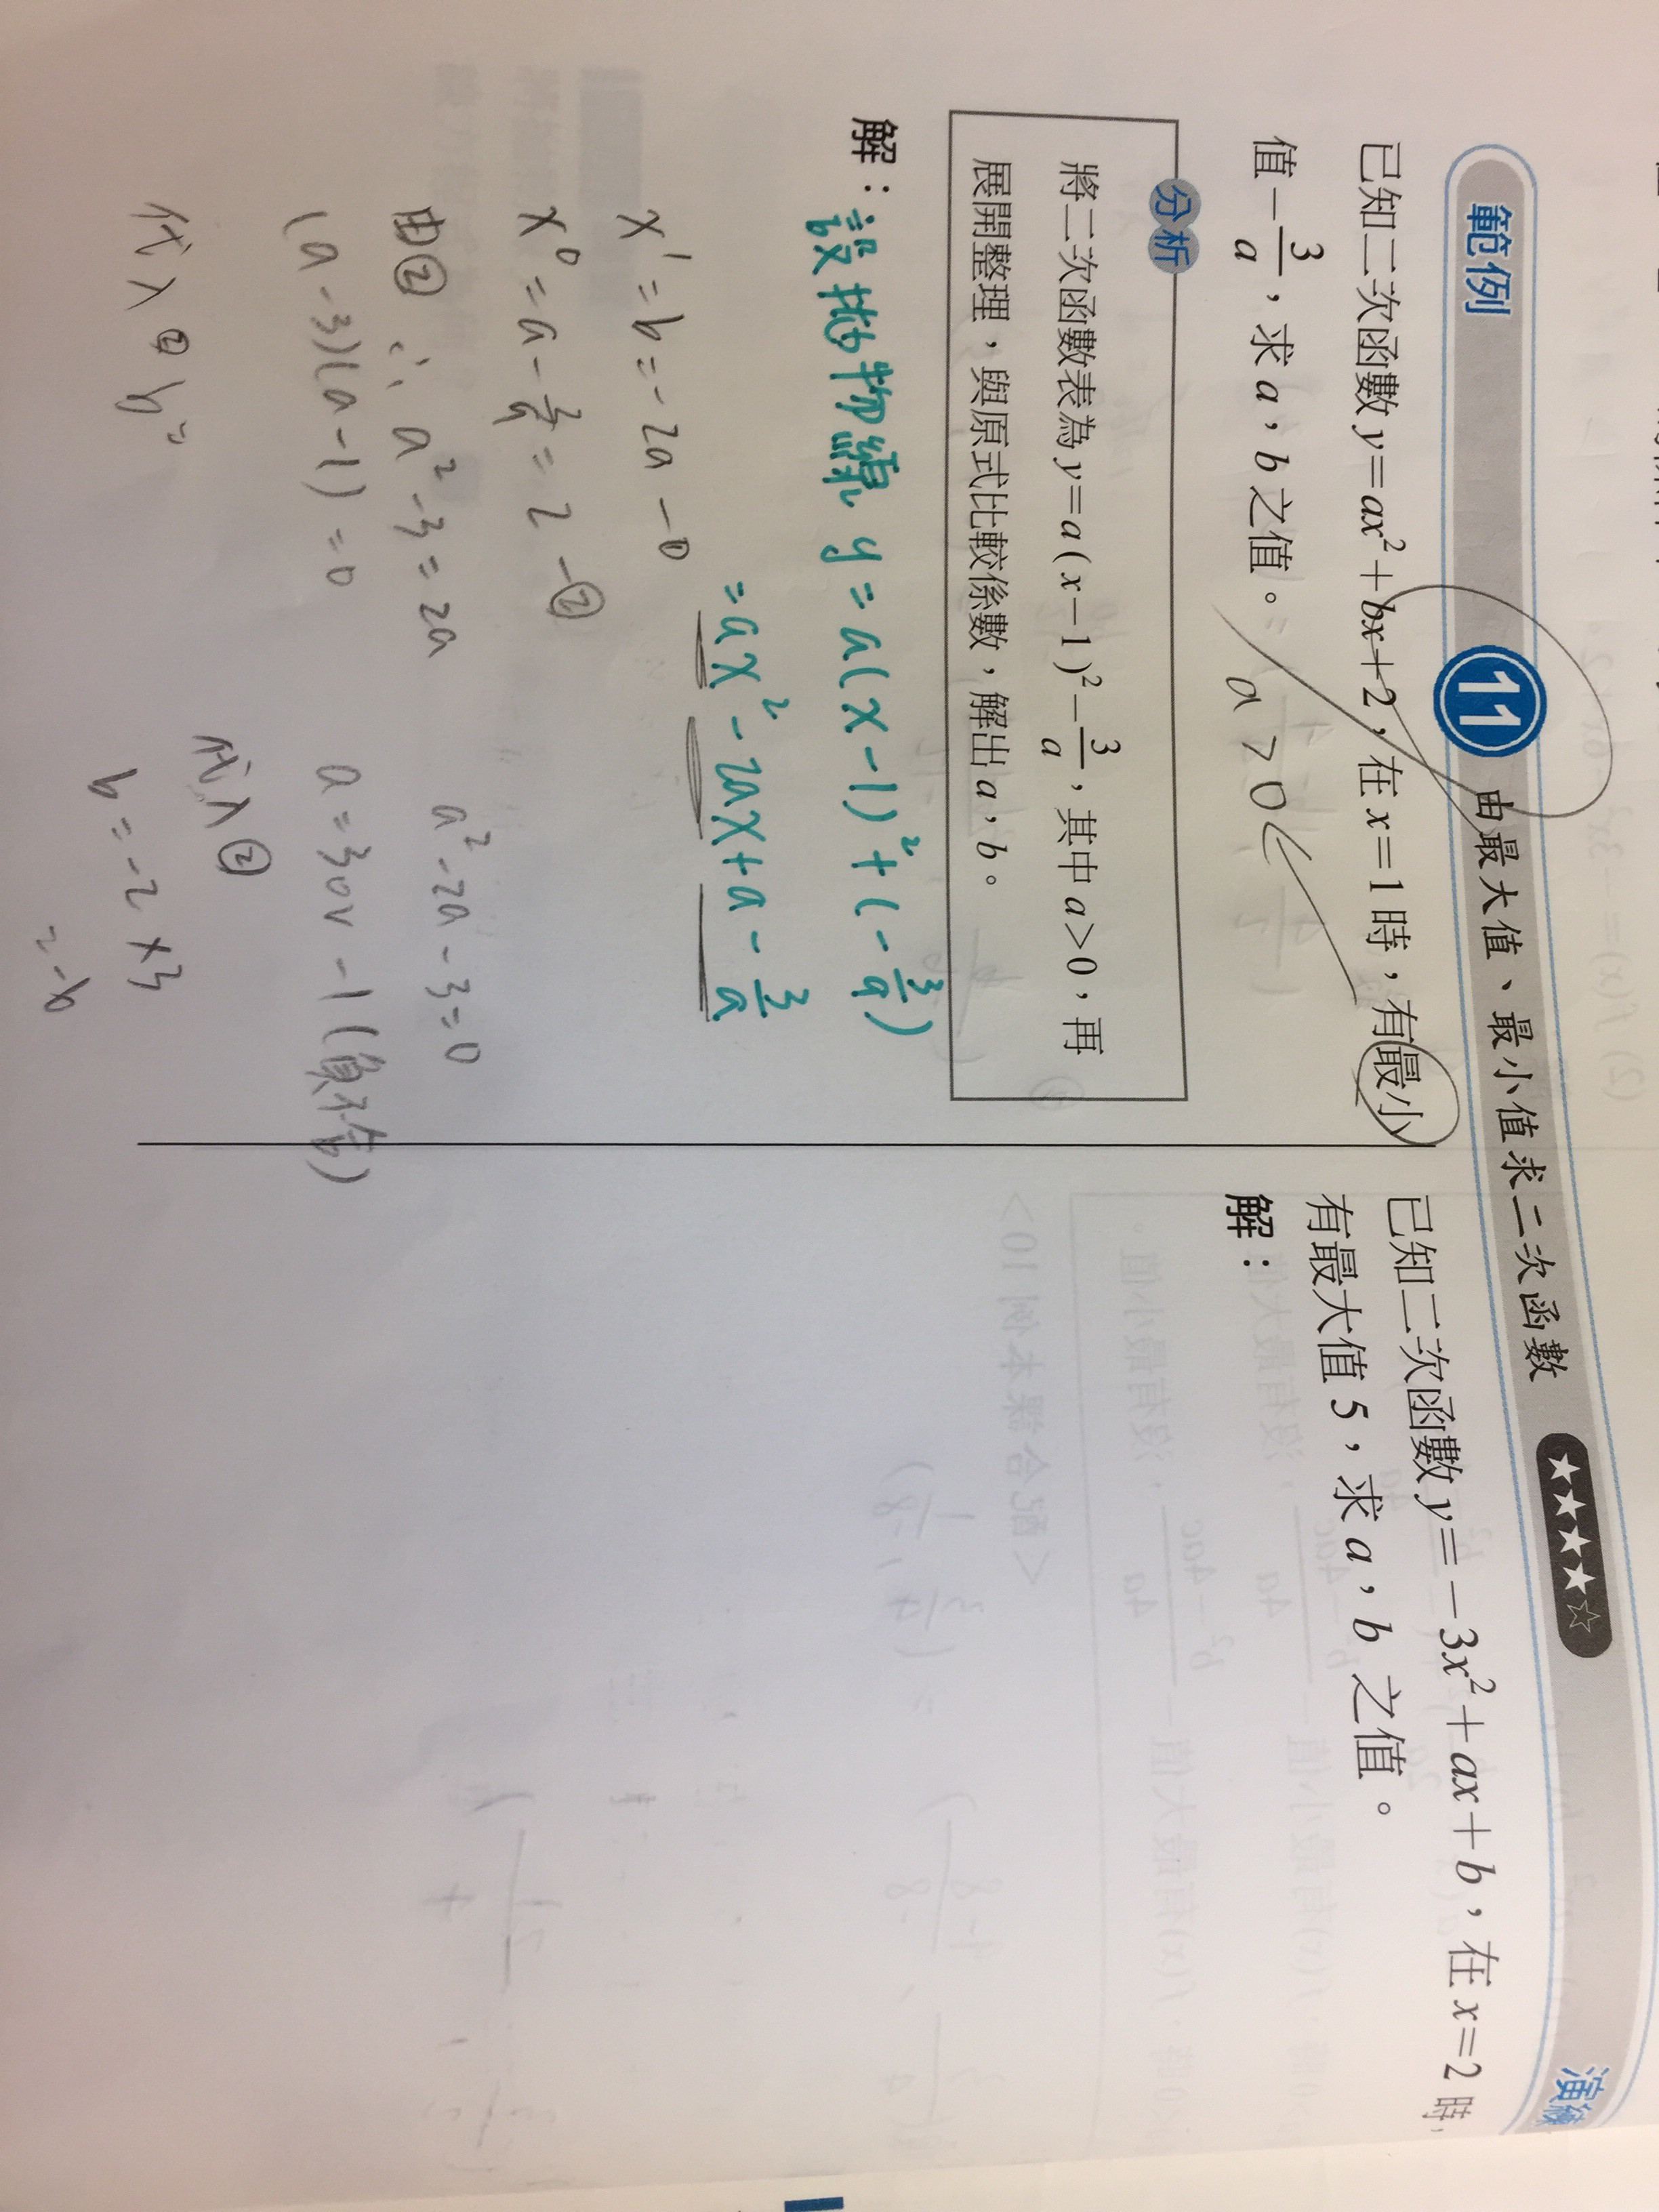 範例 11 由最大值、最小值求二次函數 ★★★★☆ 演練
已知二次函數 y=ax²+bx+2，在 x=1 時，有最小
值 -3/a，求 a，b 之值。
a>0
分析
將二次函數表為 y=a(x-1)²-3/a，其中 a>0，再
展開整理，與原式比較係數，解出 a，b。
解：設拋物線 y=a(x-1)²+(-3/a)
=ax²-2ax+a-3/a
x¹=b=-2a-①
x⁰=a-3/a=2-②
由② ∴a²-3=2a
a²-2a-3=0
(a-3)(a-1)=0
a=3 or -1(負不合)
代入② b=
代入②
b=-2×3
=-6
已知二次函數 y=-3x²+ax+b，在 x=2 時，
有最大值 5，求 a，b 之值。
解：